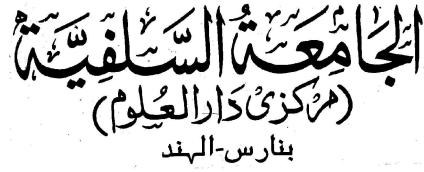 الجَامِعَةُ السَّلَفِيَّة
(مركزی دَارالعُلوم)
بنارس-الهند